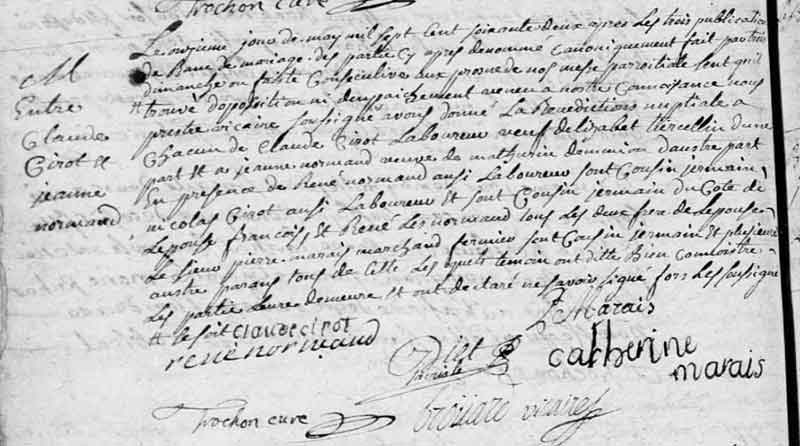 Trochon curé
M
Entre
Claude
Cirot et
jeanne
normand
Le onzieme jour de may mil sept cent soixante deux apres les trois publication
de Banc de mariage des partie cy apres denomme canoniquement fait par trois
dimanche ou faite Consecutive aux prosne de nos mese paroitiale sent quil
trouvé doposition ni denpaichement veneu a nostre connoisance nous
prestre vicaire sousigné avons donné La Benedictions nuptiale a
Chacun de Claude Cirot Laboureur veuf delizabet tiercellin dune
part Et a jeanne normand veuve de mathurin dominion daustre part
En presence de René normand ausi Laboureur sont Cousin jermain
nicolas Cirot ausi Laboureur Et sont Cousin jermain du Côté de
Lepouse francois Et René Les normand tous Les deux frere de Lepouse
Le sieur pierre marais marchand fermier sont Cousin jermain Et plusieurs
austre parans tous de Celle Les quels temoin ont ditte Bien Connoistre
Les partie Leure demeure Et ont declaré ne savoir signé fors Les sousigne
Le soit
claude cirot
P Marais
rene normand
catherine
marais
Trochon curé
vicaire